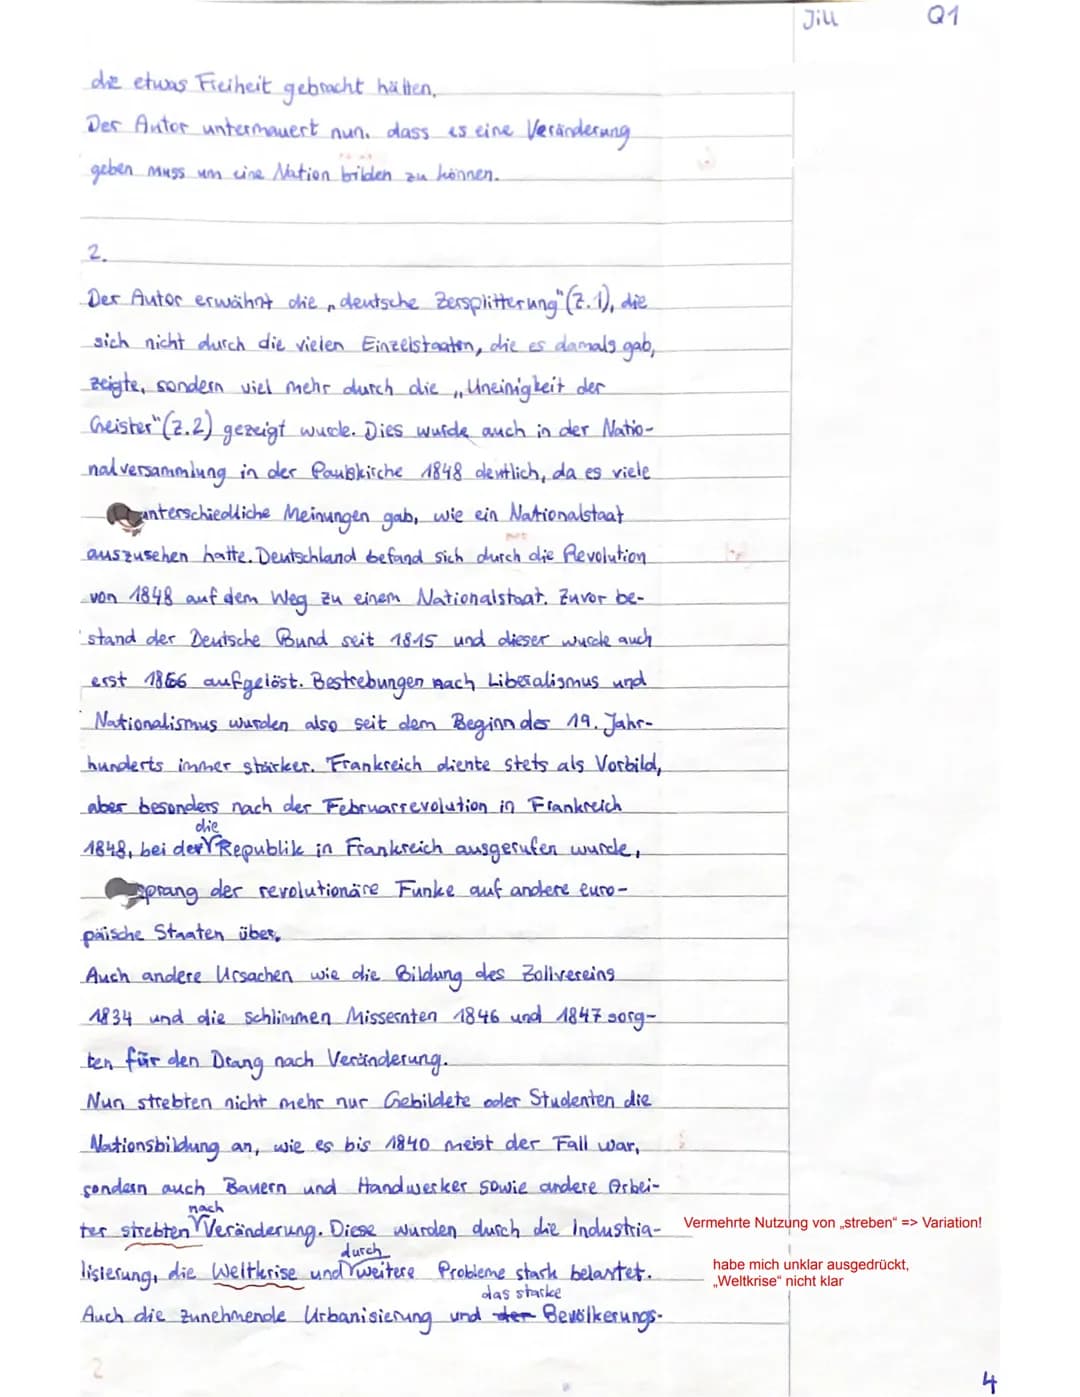 Jill Q1
die etwas Freiheit gebracht hätten.
Der Autor untermauert nun, dass es eine Veränderung
geben muss um eine Nation bilden zu können.
2.
Der Autor erwähnt die „deutsche Zersplitterung“ (Z.1), die
sich nicht durch die vielen Einzelstaaten, die es damals gab,
zeigte, sondern viel mehr durch die „Uneinigkeit der
Geister“ (Z.2) gezeigt wurde. Dies wurde auch in der Natio-
nalversammlung in der Paulskirche 1848 deutlich, da es viele
unterschiedliche Meinungen gab, wie ein Nationalstaat
auszusehen hatte. Deutschland befand sich durch die Revolution
von 1848 auf dem Weg zu einem Nationalstaat. Zuvor be-
stand der Deutsche Bund seit 1815 und dieser wurde auch
erst 1866 aufgelöst. Bestrebungen nach Liberalismus und
Nationalismus wurden also seit dem Beginn des 19. Jahr-
hunderts immer stärker. Frankreich diente stets als Vorbild,
aber besonders nach der Februarrevolution in Frankreich
die
1848, bei der Republik in Frankreich ausgerufen wurde,
sprang der revolutionäre Funke auf andere euro-
päische Staaten über.
Auch andere Ursachen wie die Bildung des Zollvereins
1834 und die schlimmen Missernten 1846 und 1847 sorg-
ten für den Drang nach Veränderung.
Nun strebten nicht mehr nur Gebildete oder Studenten die
Nationsbildung an, wie es bis 1840 meist der Fall war,
sondern auch Bauern und Handwerker sowie andere Arbei-
nach
ter strebten Veränderung. Diese wurden durch die Industria-
Vermehrte Nutzung von „streben“ => Variation!
durch
lisierung, die Weltkrise und weitere Probleme stark belastet.
habe mich unklar ausgedrückt,
„Weltkrise“ nicht klar
das starke
Auch die zunehmende Urbanisierung und der Bevölkerungs-
2
4